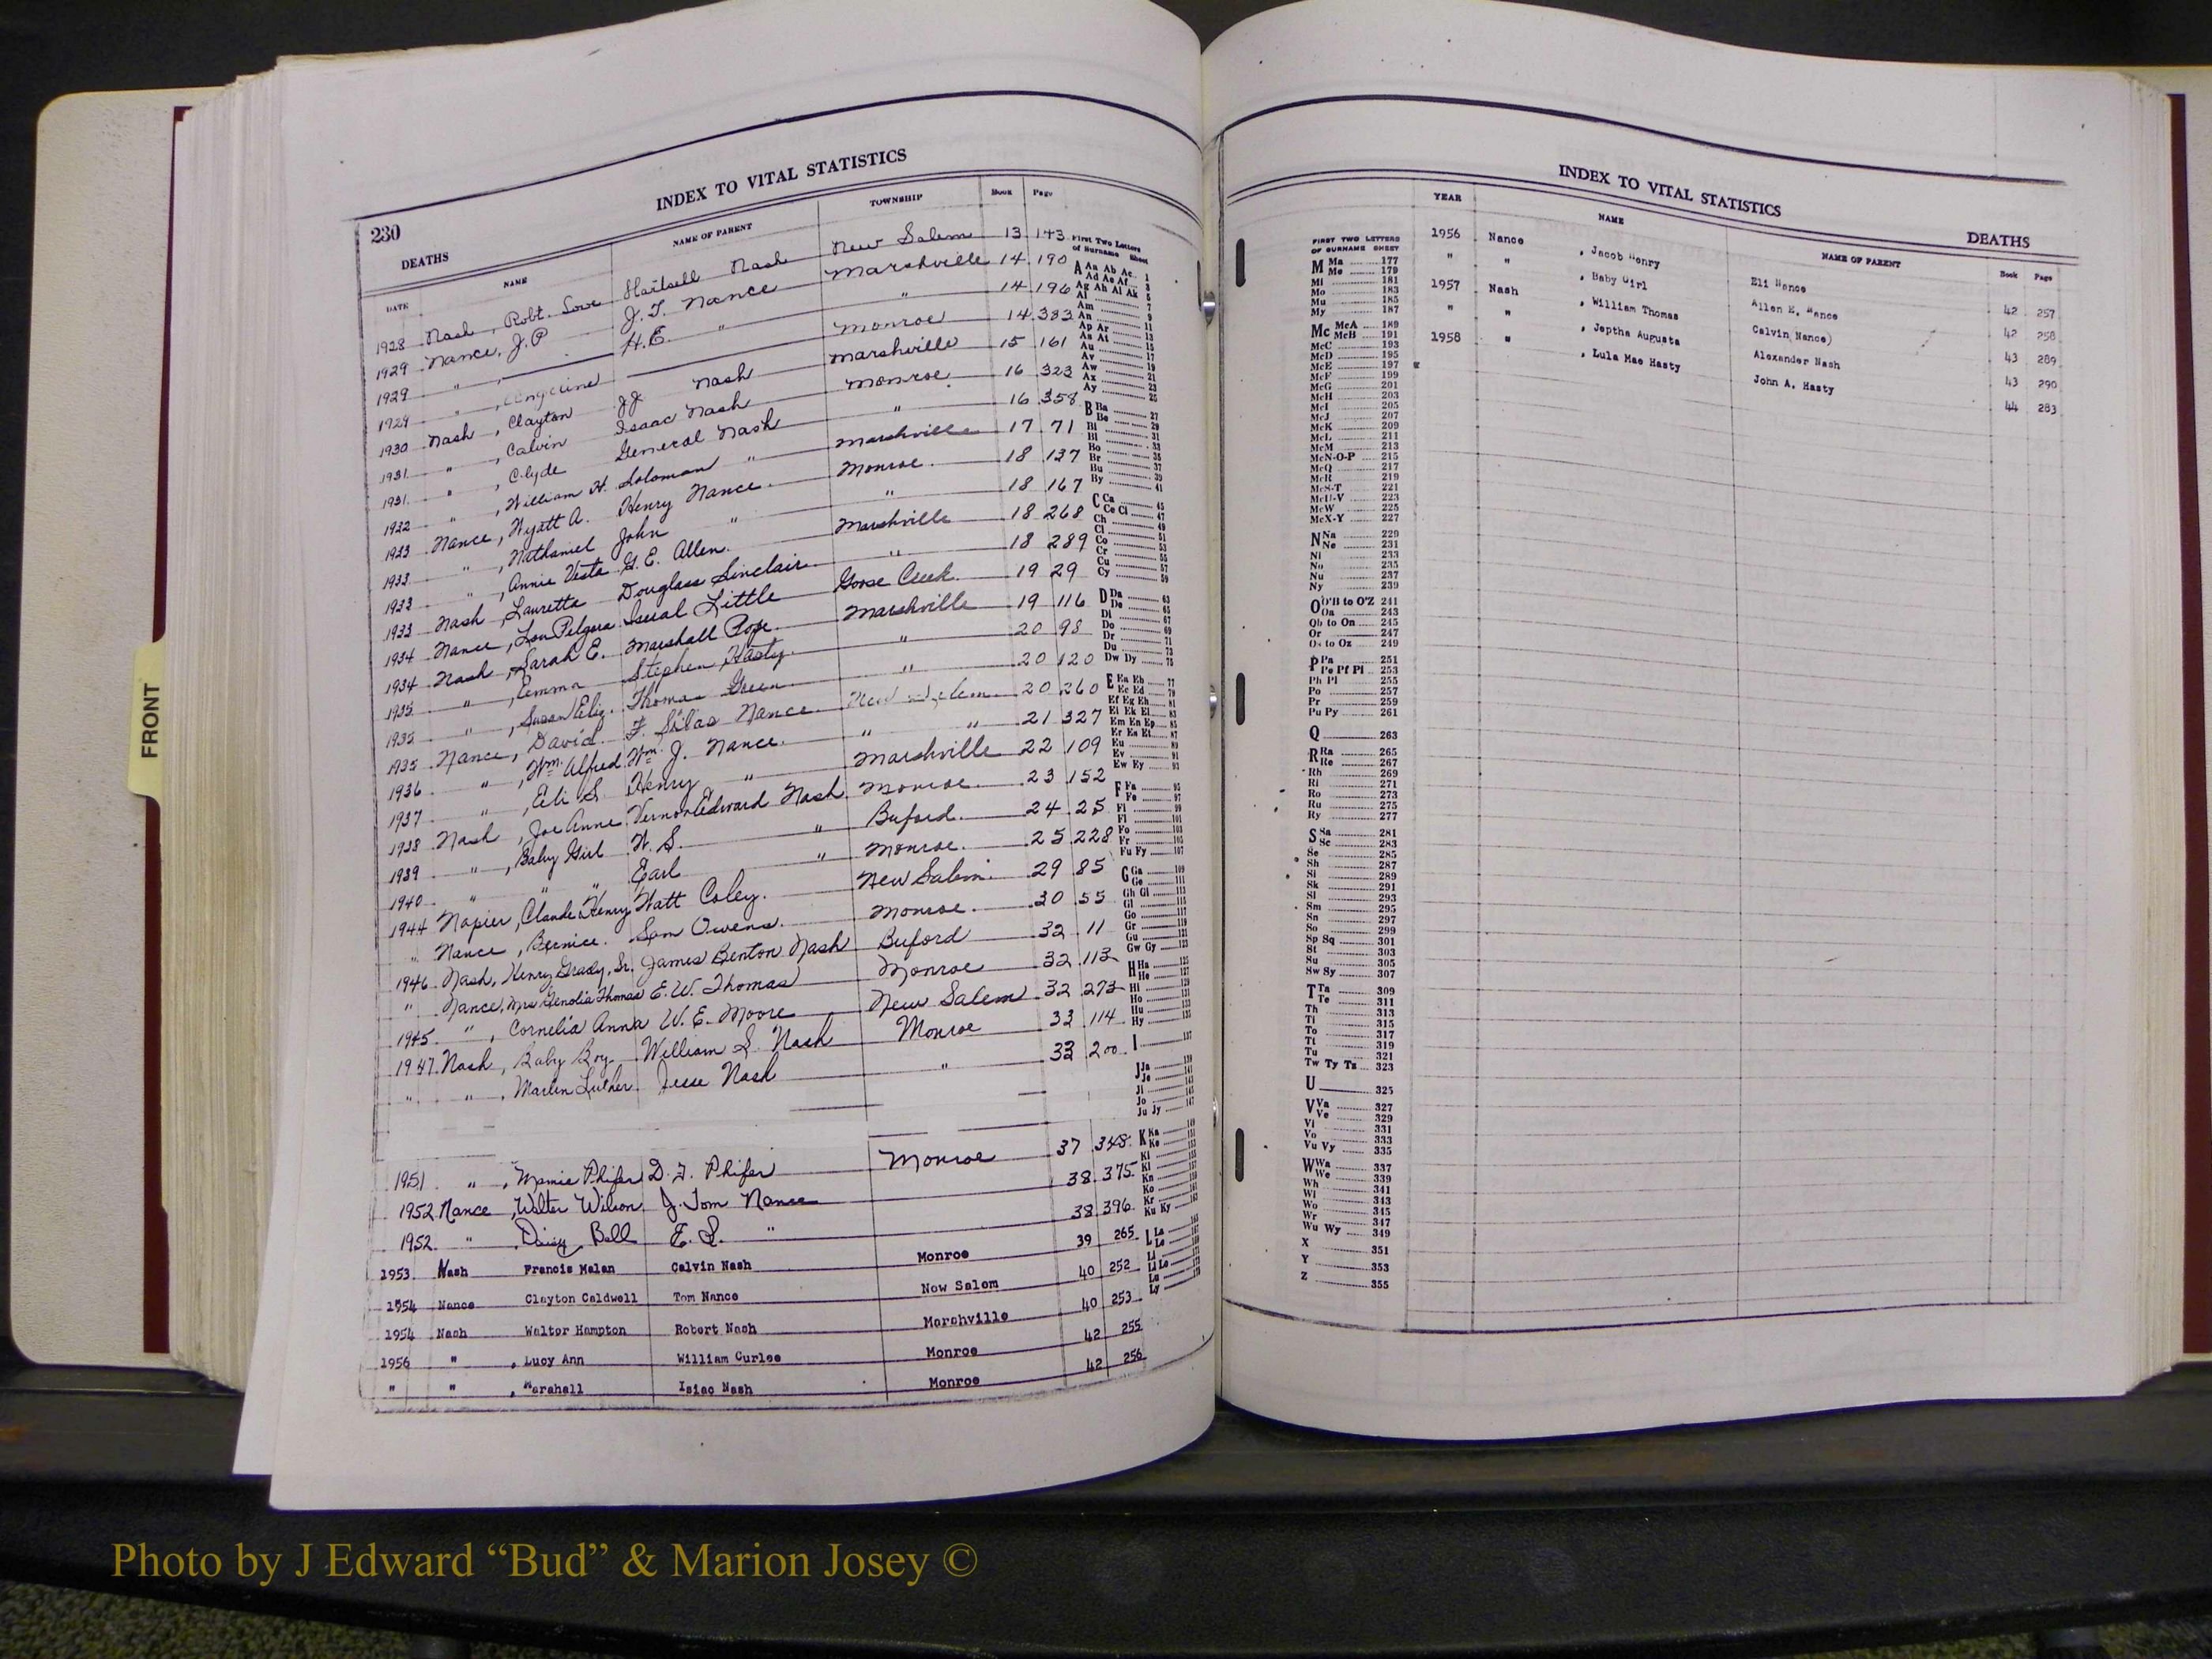 FRONT
230
INDEX TO VITAL STATISTICS
DEATHS
DATE NAME NAME OF PARENT TOWNSHIP Book Page
1928 Nash, Robt. Love Hartsell Nash New Salem 13 143
1929 Nance, J.P J. T. Nance Marshville 14 190
1929 " , H.E. " " 14 196
1929 " , Angeline Monroe 14 383
1930 Nash, Clayton J.J. Nash Marshville 15 161
1931 " , Calvin Isaac Nash Monroe 16 323
1931 " , Clyde General Nash " 16 358
1932 " , William H. Soloman " Marshville 17 71
1933 Nance, Wyatt A. Henry Nance Monroe 18 137
1933 " , Nathaniel John " " 18 167
1933 " , Annie Vesta G. E. Allen Marshville 18 268
1933 Nash, Lauretta Douglass Sinclair " 18 289
1934 Nance, Lou Little Goose Creek 19 29
1934 Nash, Sarah E. Marshall Pope Marshville 19 116
1935 " , Emma Stephen Hasty " 20 98
1935 " , Susan Eliz. Thomas Green " 20 120
1935 Nance, David F. Silas Nance New Salem 20 260
1936 " , Wm. Alfred Wm. J. Nance " 21 327
1937 " , Eli S. Henry " Marshville 22 109
1938 Nash, Joe Anne Vernon Edward Nash Monroe 23 152
1939 " , Baby Girl W. S. " Buford 24 25
1940 " " " Earl " Monroe 25 228
1944 Napier, Claude Henry Watt Coley New Salem 29 85
" Nance, Bernice Sam Owens Monroe 30 55
1946 Nash, Henry Grady, Sr. James Benton Nash Buford 32 11
" Nance, Mrs Genolia Thomas E. W. Thomas Monroe 32 113
1945 " , Cornelia Anna W. E. Moore New Salem 32 273
1947 Nash, Baby Boy William S. Nash Monroe 33 114
" " , Martin Luther Jesse Nash " 33 200
1951 " , Mamie Phifer D. F. Phifer Monroe 37 348
1952 Nance, Walter Wilson J. Tom Nance 38 375
1952 " , Daisy Bell E. L. " 38 396
1953 Nash Francis Malan Calvin Nash Monroe 39 265
1954 Nance Clayton Caldwell Tom Nance New Salem 40 252
1954 Nash Walter Hampton Robert Nash Marshville 40 253
1956 " , Lucy Ann William Curlee Monroe 42 255
" " , Marshall Isiac Nash Monroe 42 256
First Two Letters
of Surname Sheet
A Aa Ab Ac 1
Ad Ae Af 3
Ag Ah Ai Ak 5
Al 7
Am 9
An 11
Ap Ar 13
As At 15
Au 17
Av 19
Aw 21
Ax 23
Ay 25
B Ba 27
Be 29
Bi 31
Bl 33
Bo 35
Br 37
Bu 39
By 41
C Ca 45
Ce Ci 47
Ch 49
Cl 51
Co 53
Cr 55
Cu 57
Cy 59
D Da 63
De 65
Di 67
Do 69
Dr 71
Du 73
Dw Dy 75
E Ea Eb 77
Ec Ed 79
Ef Eg Eh 81
Ei Ek El 83
Em En Ep 85
Er Es Et 87
Eu 89
Ev 91
Ew Ey 93
F Fa 95
Fe 97
Fi 99
Fl 101
Fo 103
Fr 105
Fu Fy 107
G Ga 109
Ge 111
Gh Gi 113
Gl 115
Go 117
Gr 119
Gu 121
Gw Gy 123
H Ha 125
He 127
Hi 129
Ho 131
Hu 133
Hy 135
I 137
J Ja 139
Je 141
Ji 143
Jo 145
Ju Jy 147
K Ka 149
Ke 151
Ki 153
Kl
Kn
Ko
Kr
Ku Ky
L La
Le
Li
Ll Lo
Lu
Ly
INDEX TO VITAL STATISTICS
DEATHS
YEAR NAME NAME OF PARENT Book Page
1956 Nance , Jacob Henry Eli Nance 42 257
" " , Baby Girl Allen E. Nance 42 258
1957 Nash , William Thomas Calvin Nance) 43 289
" " , Jeptha Augusta Alexander Nash 43 290
1958 " , Lula Mae Hasty John A. Hasty 44 283
FIRST TWO LETTERS
OF SURNAME SHEET
M Ma 177
Me 179
Mi 181
Mo 183
Mu 185
My 187
Mc McA 189
McB 191
McC 193
McD 195
McE 197
McF 199
McG 201
McH 203
McI 205
McJ 207
McK 209
McL 211
McM 213
McN-O-P 215
McQ 217
McR 219
McS-T 221
McU-V 223
McW 225
McX-Y 227
N Na 229
Ne 231
Ni 233
No 235
Nu 237
Ny 239
O O'B to O'Z 241
Oa 243
Ob to On 245
Or 247
Os to Oz 249
P Pa 251
Pe Pf Pi 253
Ph Pl 255
Po 257
Pr 259
Pu Py 261
Q 263
R Ra 265
Re 267
Rh 269
Ri 271
Ro 273
Ru 275
Ry 277
S Sa 281
Sc 283
Se 285
Sh 287
Si 289
Sk 291
Sl 293
Sm 295
Sn 297
So 299
Sp Sq 301
St 303
Su 305
Sw Sy 307
T Ta 309
Te 311
Th 313
Ti 315
To 317
Tt 319
Tu 321
Tw Ty Tz 323
U 325
V Va 327
Ve 329
Vi 331
Vo 333
Vu Vy 335
W Wa 337
We 339
Wh 341
Wi 343
Wo 345
Wr 347
Wu Wy 349
X 351
Y 353
Z 355
Photo by J Edward “Bud” & Marion Josey ©